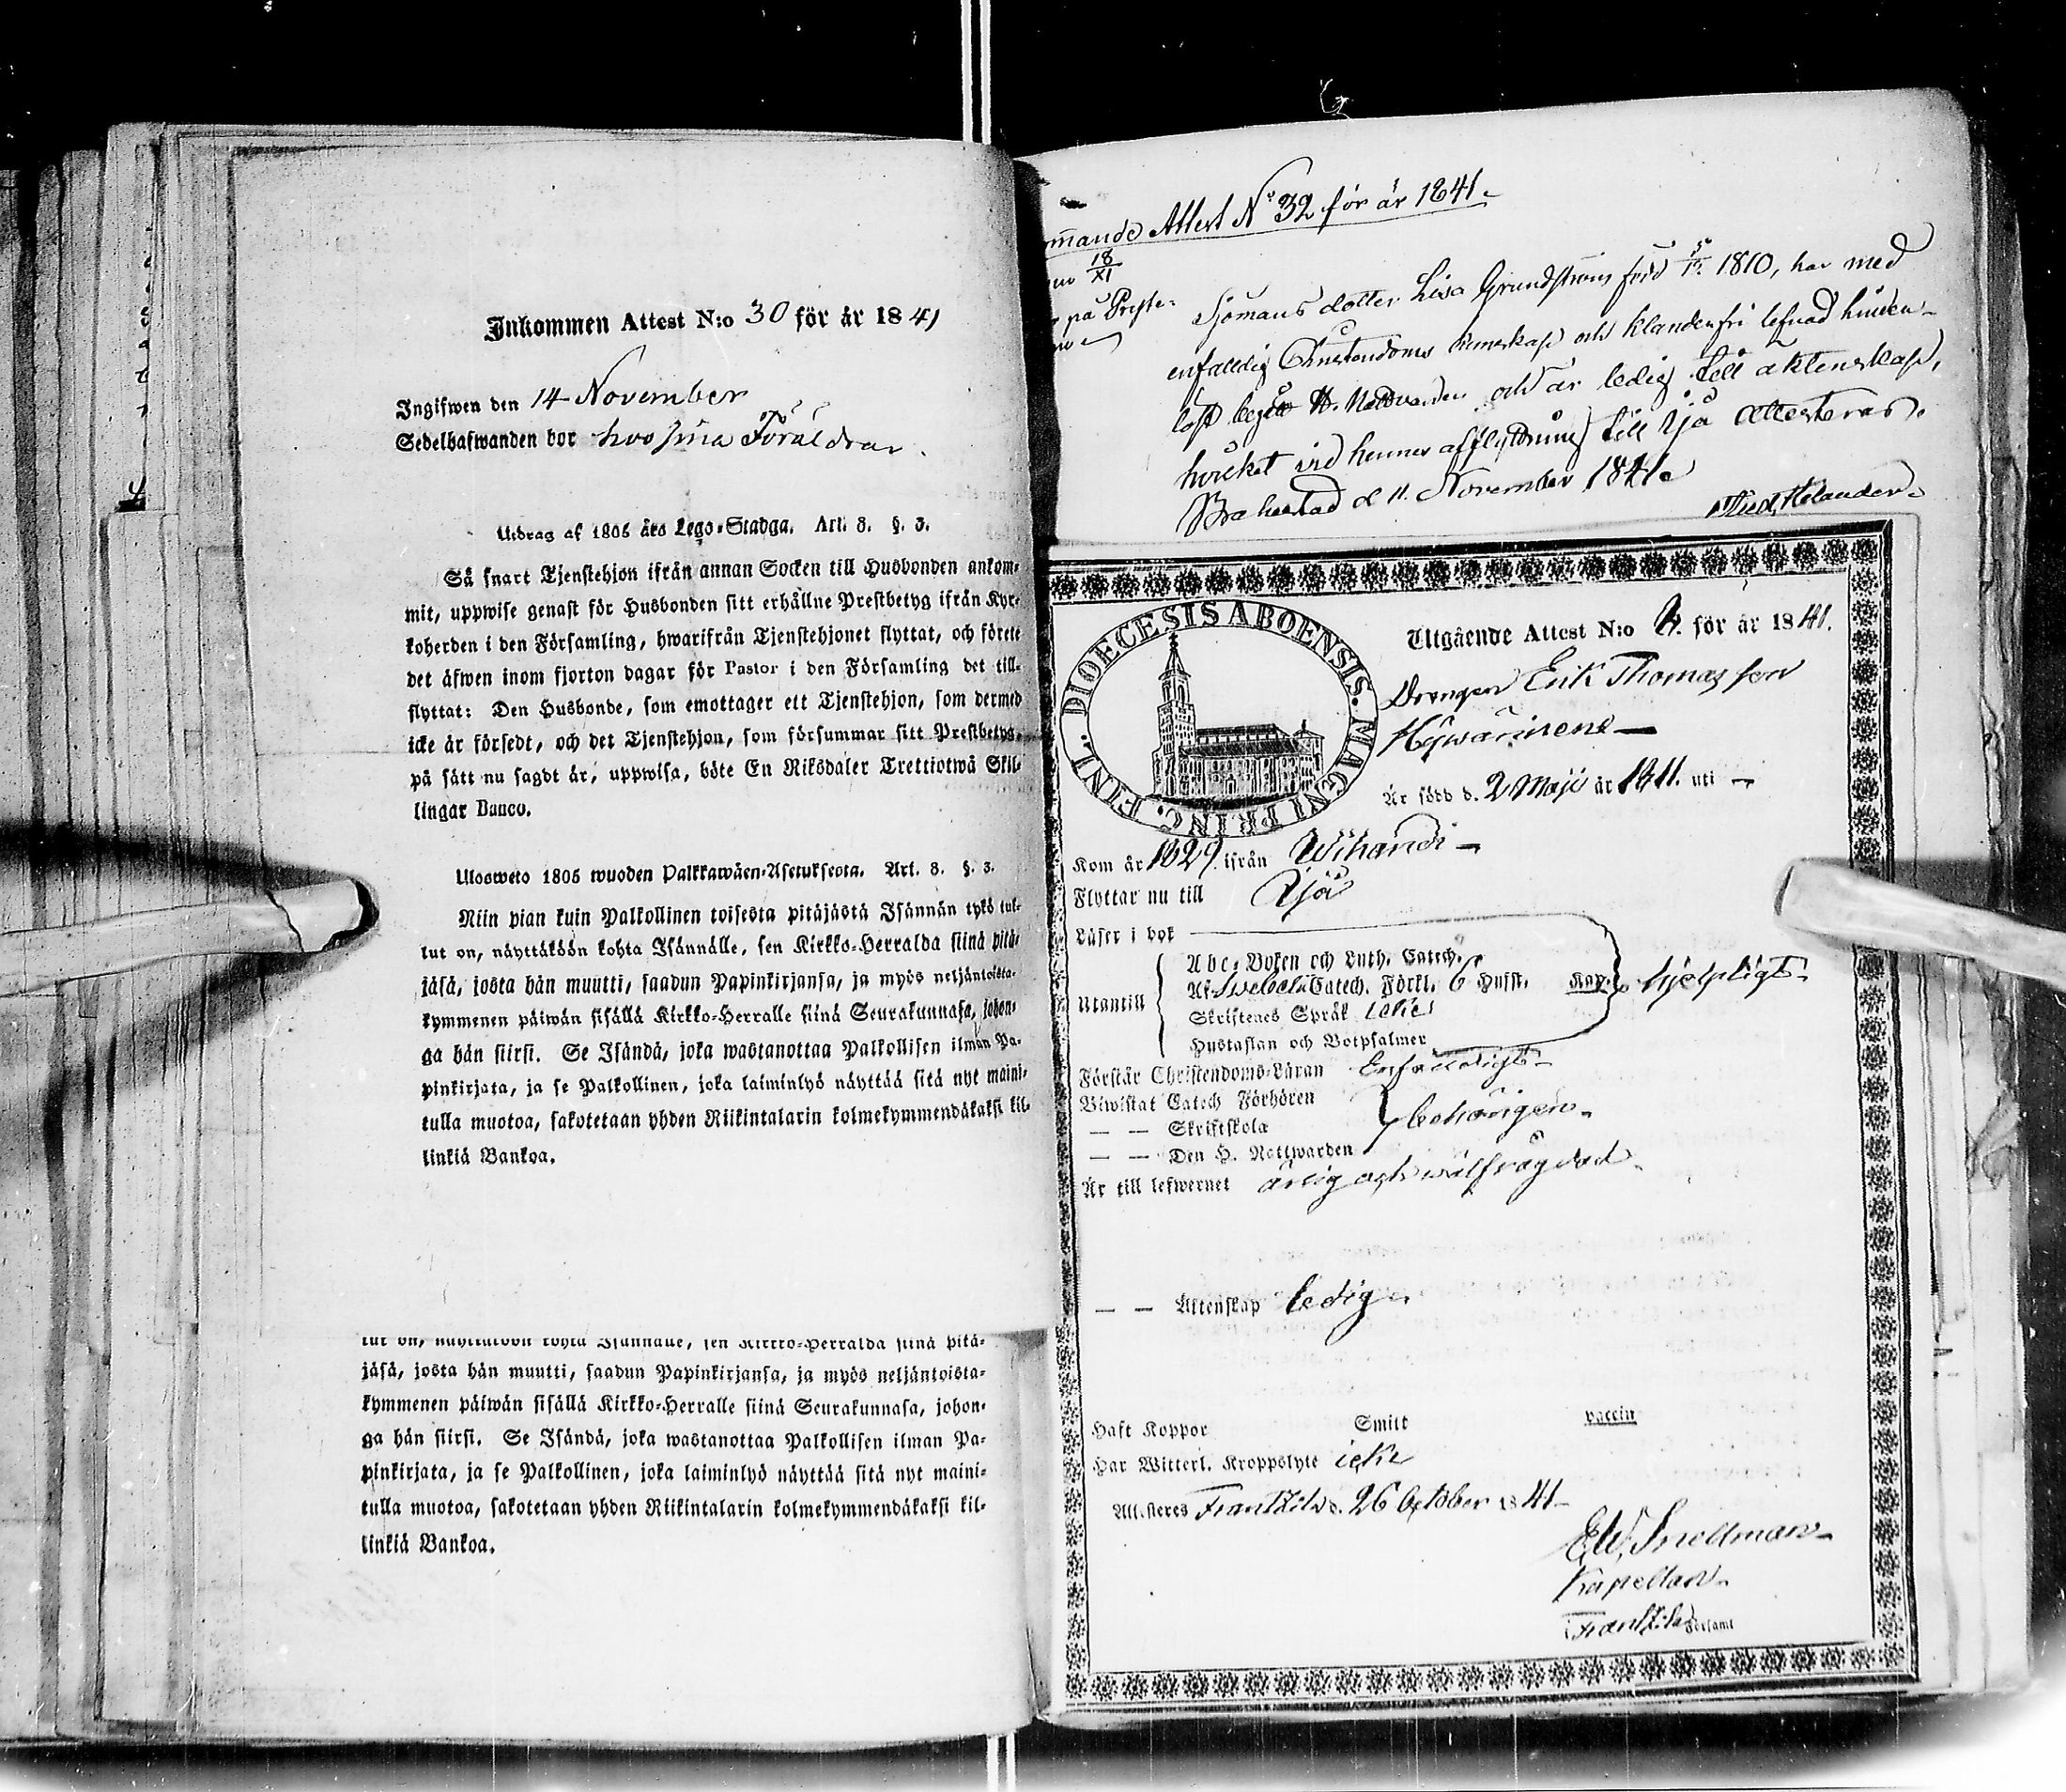 Inkommen Attest N:o 30 för år 1841
Ingifwen den 14 November
Sedelhafwanden bor hos sina Föräldrar.
Utdrag af 1805 års Lego-Stadga. Art. 8. §. 3.
Så snart Tjenstehjon ifrån annan Socken till Husbonden ankom-
mit, uppwise genast för Husbonden sitt erhållne Prestbetyg ifrån Kyr-
koherden i den Församling, hwarifrån Tjenstehjonet flyttat, och förete
det äfwen inom fjorton dagar för Pastor i den Församling det till-
flyttat: Den Husbonde, som emottager ett Tjenstehjon, som dermed
icke är försedt, och det Tjenstehjon, som försummar sitt Prestbetyg,
på sätt nu sagdt är, uppwisa, böte En Riksdaler Trettiotwå Skil-
lingar Banco.
Ulosweto 1805 wuoden Palkkawäen-Asetuksesta. Art. 8. §. 3.
Niin pian kuin Palkollinen toisesta pitäjästä Isännän tykö tul-
lut on, näyttäköön kohta Isännälle, sen Kirkko-Herralda siinä pitä-
jäsä, josta hän muutti, saadun Papinkirjansa, ja myös neljäntoista-
kymmenen päiwän sisällä Kirkko-Herralle siinä Seurakunnasa, johon-
ga hän siirsi. Se Isändä, joka wastanottaa Palkollisen ilman Pa-
pinkirjata, ja se Palkollinen, joka laiminlyö näyttää sitä nyt maini-
tulla muotoa, sakotetaan yhden Riikintalarin kolmekymmendäkaksi kil-
linkiä Bankoa.
lut on, näyttäköön kohta Isännälle, sen Kirkko-Herralda siinä pitä-
jäsä, josta hän muutti, saadun Papinkirjansa, ja myös neljäntoista-
kymmenen päiwän sisällä Kirkko-Herralle siinä Seurakunnasa, johon-
ga hän siirsi. Se Isändä, joka wastanottaa Palkollisen ilman Pa-
pinkirjata, ja se Palkollinen, joka laiminlyö näyttää sitä nyt maini-
tulla muotoa, sakotetaan yhden Riikintalarin kolmekymmendäkaksi kil-
linkiä Bankoa.
mande Attest N:o 32 för år 1841.
18/XI
på Preste-
Sjömans dotter Lisa Grundström född 1810, har med
enfaldig Christendoms kunskap och klanderfri lefnad hinder-
löst begått H. Nattvarden och är ledig till äktenskap,
hvilket vid hennes afflyttning till Ijå attesteras.
Brahestad d. 11. November 1841.
Helander.
DIOECESIS ABOENSIS. MAGNI PRINC. FINL.
Utgående Attest N:o för år 1841.
Drengen Erik Thomasson
Hywärinen
Är född d. 2 Maji år 1811. uti —
Kom år 1829. ifrån Wihandi
Flyttar nu till Ijå
Läser i bok
Utantill
Abc-Boken och Luth. Catech.
Af Swebelii Catech. Förkl. 6 Hufst. Kap. hjelpligt
Skriftenes Språk icke
Hustaflan och Botpsalmer
Förstår Christendoms-Läran Enfaldigt
Biwistat Catech Förhören
— — Skriftskola behörigen
— — Den H. Nattwarden
Är till lefwernet ärlig och wälfrägdad
— — Äktenskap ledig
Haft Koppor Smitt vaccin
Har Witterl. Kroppslyte icke
Attesteres Frantzila d. 26 October 1841
E.W. Snellman
Kapellan
i Frantzila Församl